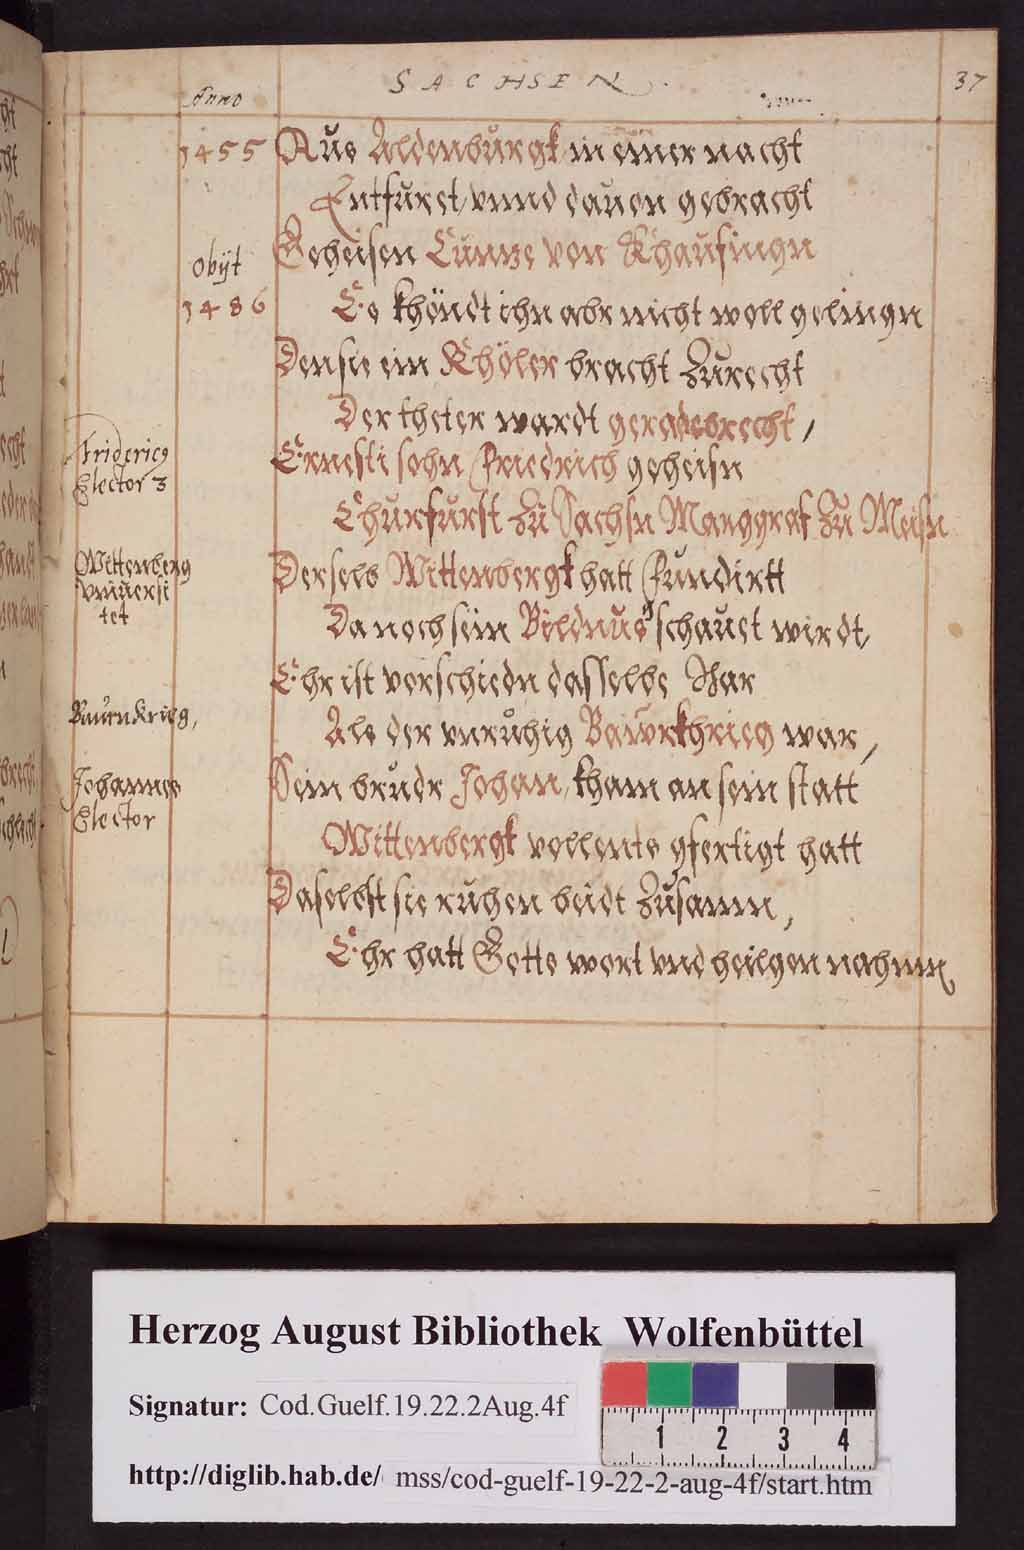 SACHSEN.
37
Anno
1455
Aus Aldenburgk in einer nacht
Entfuret vnnd dauon gebracht
Geheisen Cuntze von Khaufingn
obijt
1486
Es khöndt ihn abr nicht woll gelingn
Den sie ein Khöler bracht zurecht
Der theter wardt geradebrecht,
Fridericg
Elector 3
Ernesti sohn Friedrich geheisn
Churfurst zu Sachsn Marggraf zu Meisn
Wittenberg
vniuersi
tet
Derselb Wittenbergk hatt fundirtt
Da noch sein Bildnus gschauet wirdt,
Ehr ist verschiedn dasselbe Jhar
Baurnkrieg,
Als der vnruhig Bawrkhrieg war,
Johannes
Elector
Sein brudr Johan, kham an sein statt
Wittenbergk vollents gfertigt hatt
Daselbst sie ruhen beidt zusamm,
Ehr hatt Gotts wort vnd heilgen nahmn
Herzog August Bibliothek Wolfenbüttel
Signatur: Cod.Guelf.19.22.2Aug.4f
http://diglib.hab.de/ mss/cod-guelf-19-22-2-aug-4f/start.htm
1 2 3 4